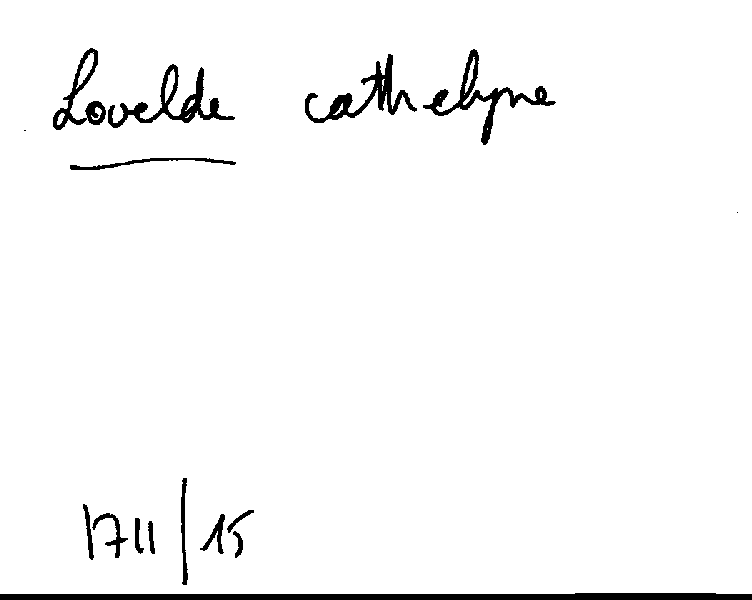 Lovelde cathelyne
1711/15